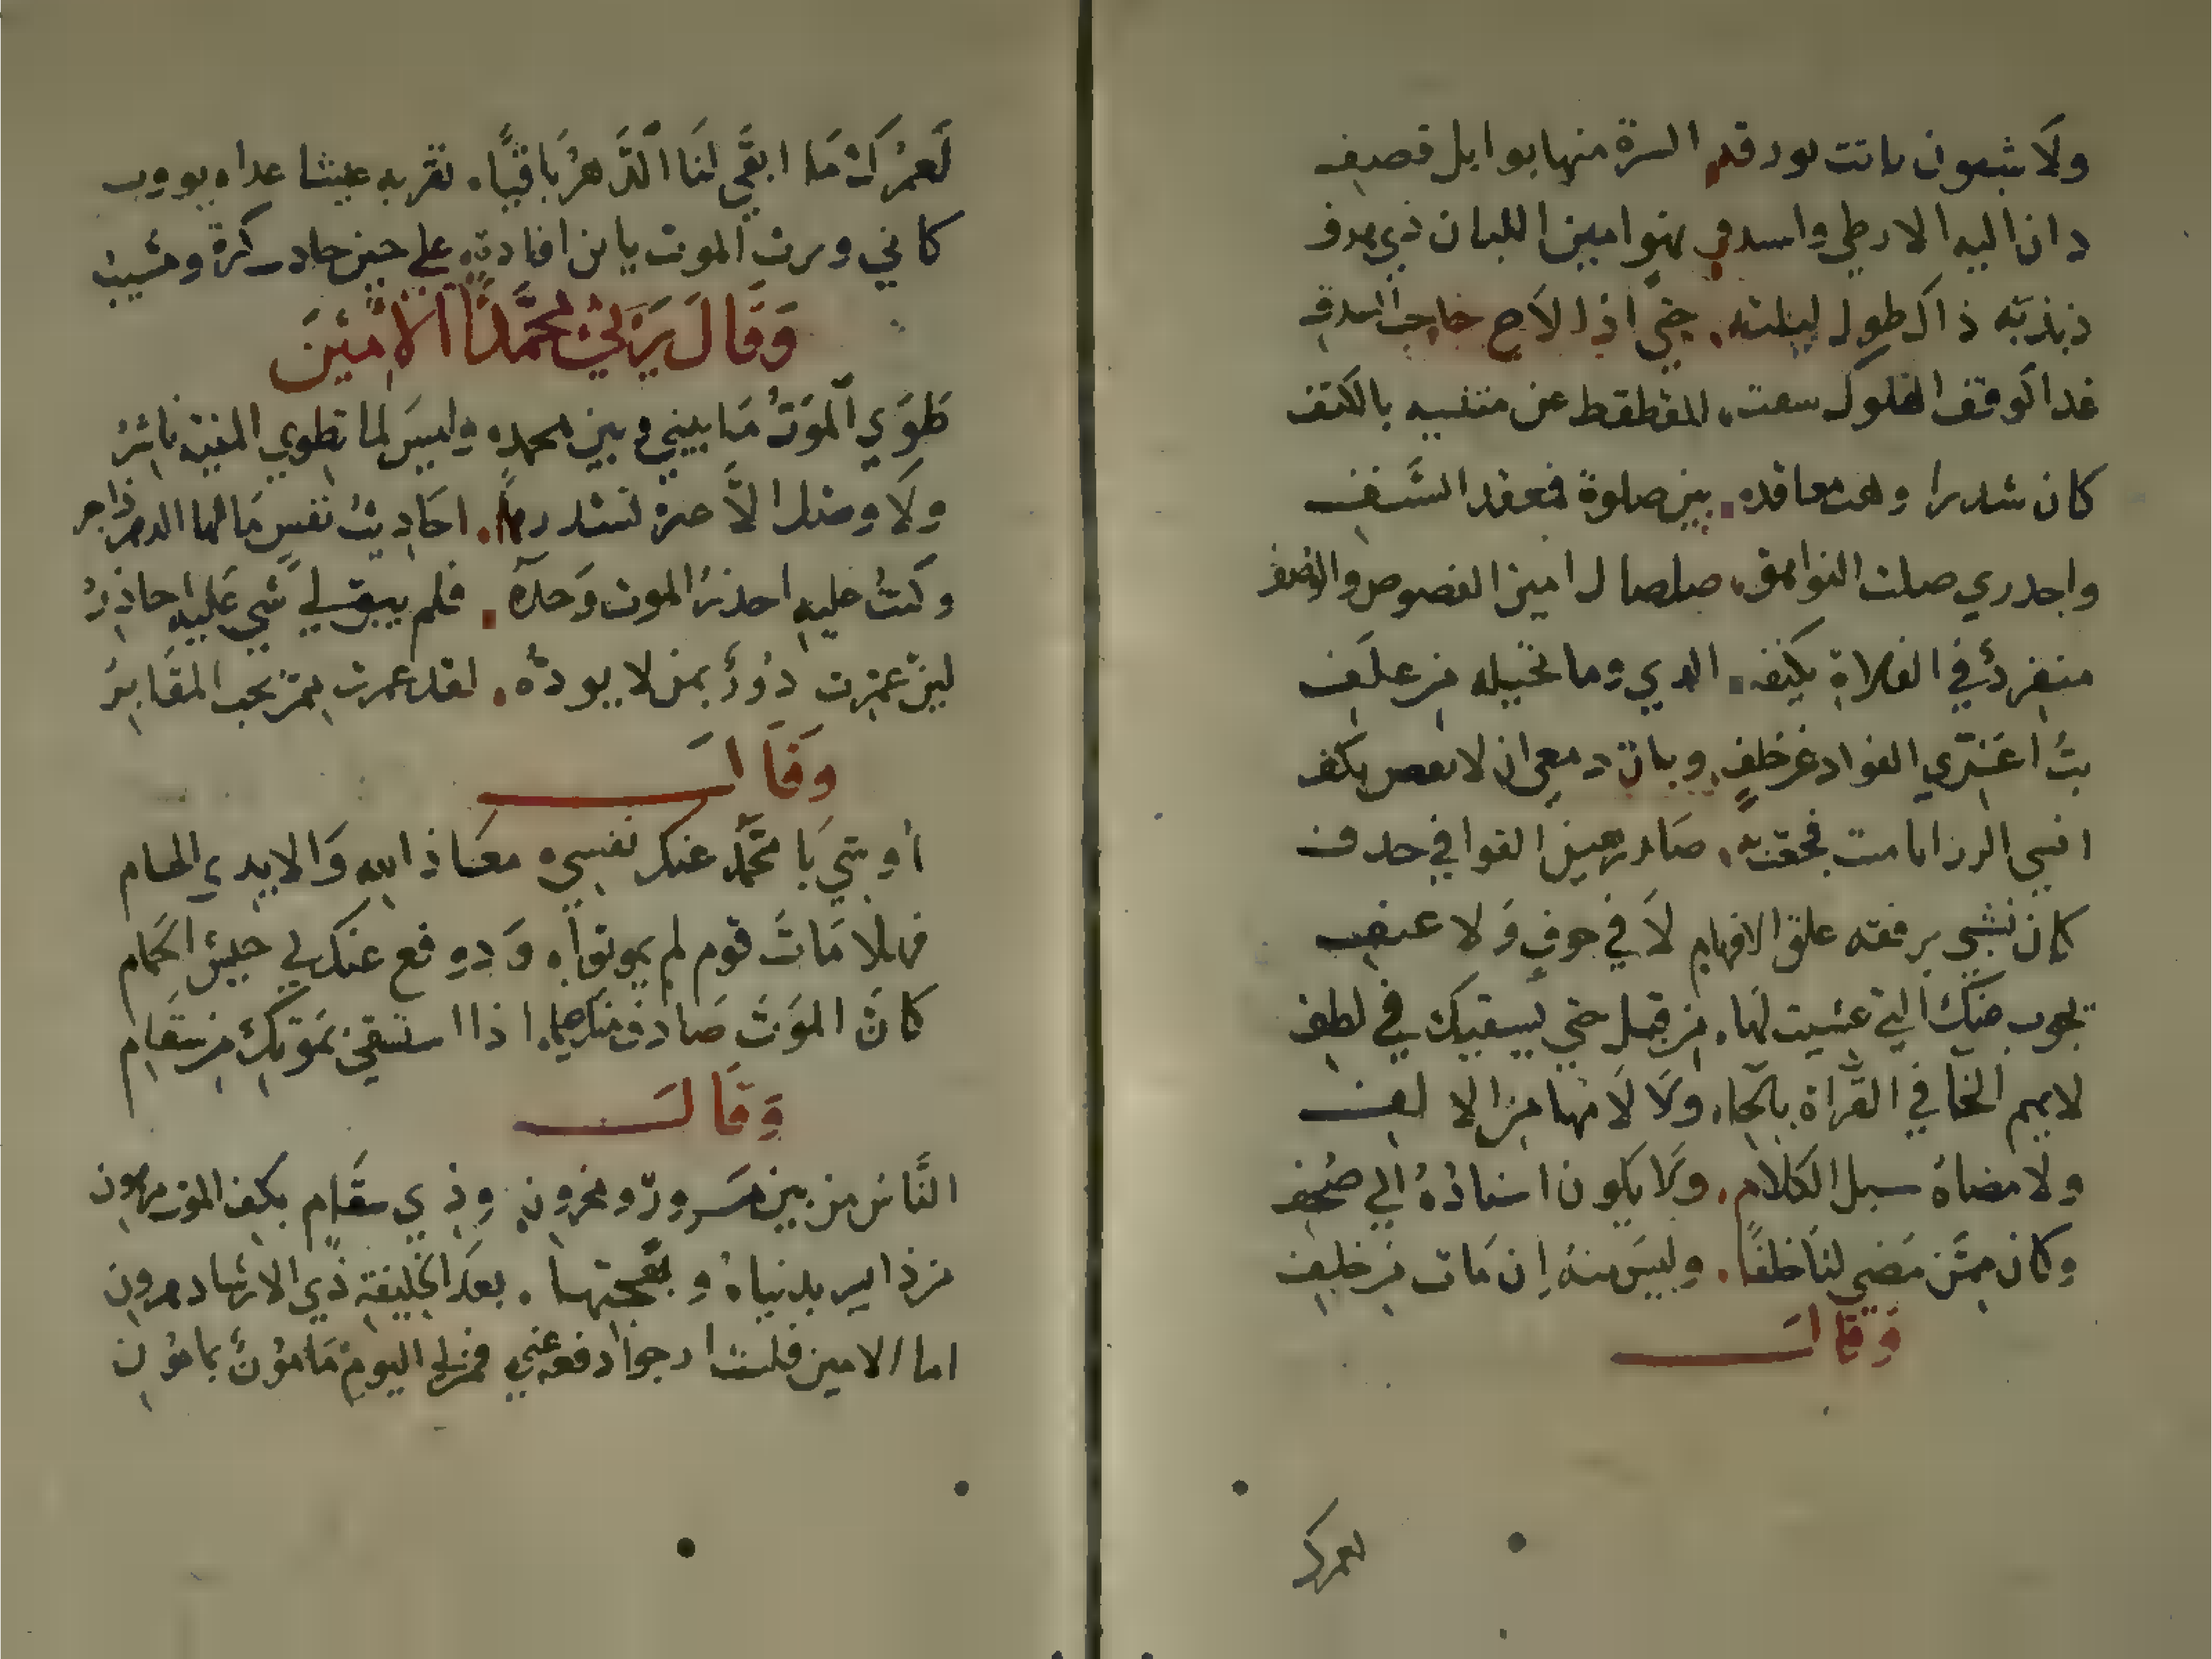 ولَا شبعون باتت بورقه السرة منها بوابل قصيف
دان اليه الارطي واسدفي بهوا مين اللبان ذي هدف
ذبذبه ذاك طول ليلته. حتي اذا لاح حاجب السدف
غدا كوقف الهلوك سعت. القطقط عن متنيه بالكتف
كان شدرا وهت معاقده. بين صلوة فعقد الشنف
واجدري صلت النواهق. صلصال امين الفصوص والوضف
منفردٌ في الفلاة يكنفه. الدي وما تخيله من علف
بتُ اعَزّي الفواد عن خلفٍ. وبات دمعي ان لا يعص يكف
انسي الرزايا ميت فجعت به. صار رهين القوا في جدف
كان نشي برفقه علق الافهام لَا في حوفٍ وَلا عنف
يجوب عنك التي عشيت لهَا. من قبل حتي يسقيك في لطف
لا يهم الخا في القراة بالحَا. ولَا لَامها من الالف
ولا مضاهُ سبل الكلام. ولَا يكون اسنادُهُ الي صُحُف
وكان ممَّن مَضي لنَا خلفًا. وليسَ منهُ اِن مَات من خلف
وَقَالَ
لعمرك
لَعمرُكَ مَا ابقَي لنَا الدَّهرُ بَاقيًا. تقر به عيشا عداه يووب
كاني ورت الموت يا بن افادت. علي حين حادت كرة ومشيب
وَقَالَ يَرثيْ محمَّدًا الاَمِيْنَ
طَوَي الموَتُ مَا بيني وبين محمده وليسَ لما تطوي المنية ناشرُ
ولَا وصل الاَّ عبرة تستدرها. احَاديثُ نفس مَالها الدهر ذاجر
وكنتُ عليه احذرُ الموت وَحدَهُ. فلم يبق لي شي عَليه احاذرُ
لين عمرت دُورٌ بمن لا يودُه. لقد عمرت بمن يحب المقَابِرُ
وَقَالَ
أويتي يَا محَمَّد عنك نفسيه معَاذ الله وَالايدي الجسام
فهلا مَاتَ قوم لم يموتوا. وَدوفع عنك لي حيش الحمام
كانَ الموَتَ صَادف منك هما. اذا استشفي بمَوتكَ من سقَام
وَقَالَ
النَّاس من بين مَسرورٌ ومحزون وذي سقَام بكف الموت مرهون
من ذا يسر بدنياهُ وبهجتها. بعدَ الخليفة ذي الارشاد هرون
اما الامين فلست ارجوا دفعه عني فمن لي اليوم مَامُونٌ بمامُون